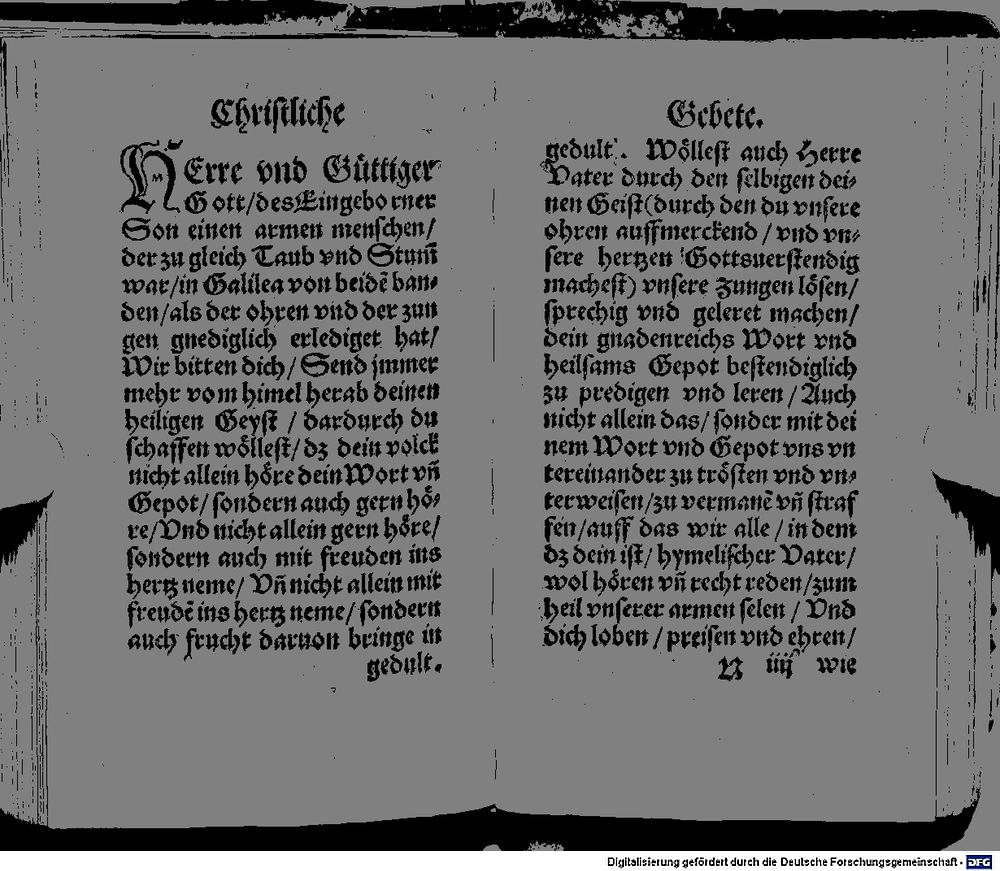 Christliche
HErre vnd Güttiger
Gott/des Eingeborner
Son einen armen menschen/
der zu gleich Taub vnd Stum̄
war/in Galilea von beidē ban-
den/als der ohren vnd der zun
gen gnediglich erlediget hat/
Wir bitten dich/ Send jmmer
mehr vom himel herab deinen
heiligen Geyst / dardurch du
schaffen wöllest/ dz dein volck
nicht allein höre dein Wort vn̄
Gepot/ sondern auch gern hö-
re/ Vnd nicht allein gern höre/
sondern auch mit freuden ins
hertz neme/ Vn̄ nicht allein mit
freudē ins hertz neme/ sondern
auch frucht daruon bringe in
gedult.
Gebete.
gedult. Wöllest auch Herre
Vater durch den selbigen dei-
nen Geist(durch den du vnsere
ohren auffmerckend / vnd vn-
sere hertzen Gottsuerstendig
machest) vnsere Zungen lösen/
sprechig vnd geleret machen/
dein gnadenreichs Wort vnd
heilsams Gepot bestendiglich
zu predigen vnd leren / Auch
nicht allein das/ sonder mit dei
nem Wort vnd Gepot vns vn
tereinander zu trösten vnd vn-
terweisen/zu vermanē vn̄ straf
fen/auff das wir alle / in dem
dz dein ist/ hymelischer Vater/
wol hören vn̄ recht reden/zum
heil vnserer armen selen / Vnd
dich loben / preisen vnd ehren/
N iiij wie
Digitalisierung gefördert durch die Deutsche Forschungsgemeinschaft - DFG